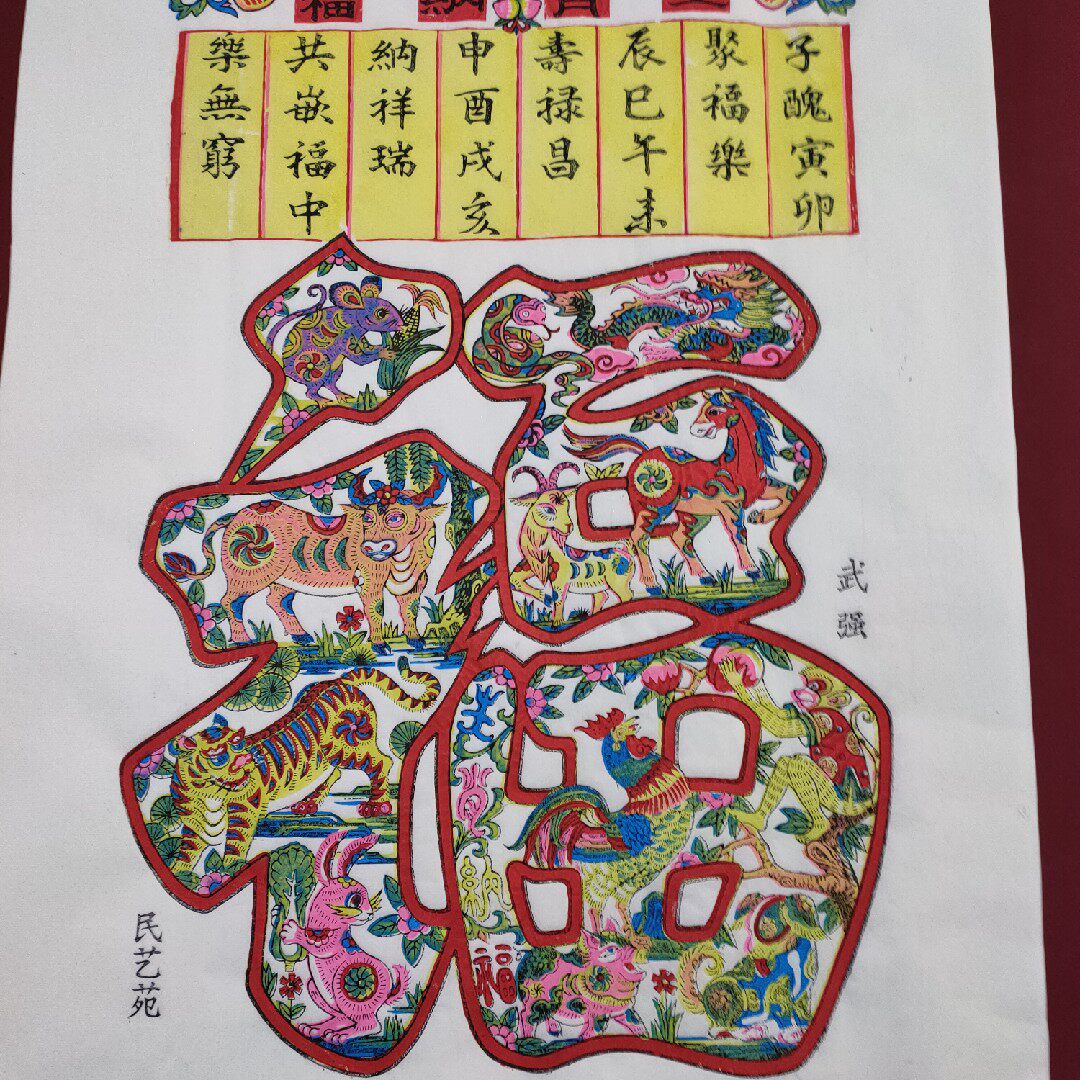 子醜寅卯
聚福樂
辰巳午未
壽禄昌
申酉戌亥
納祥瑞
共嵌福中
樂無窮
福
武强
民艺苑